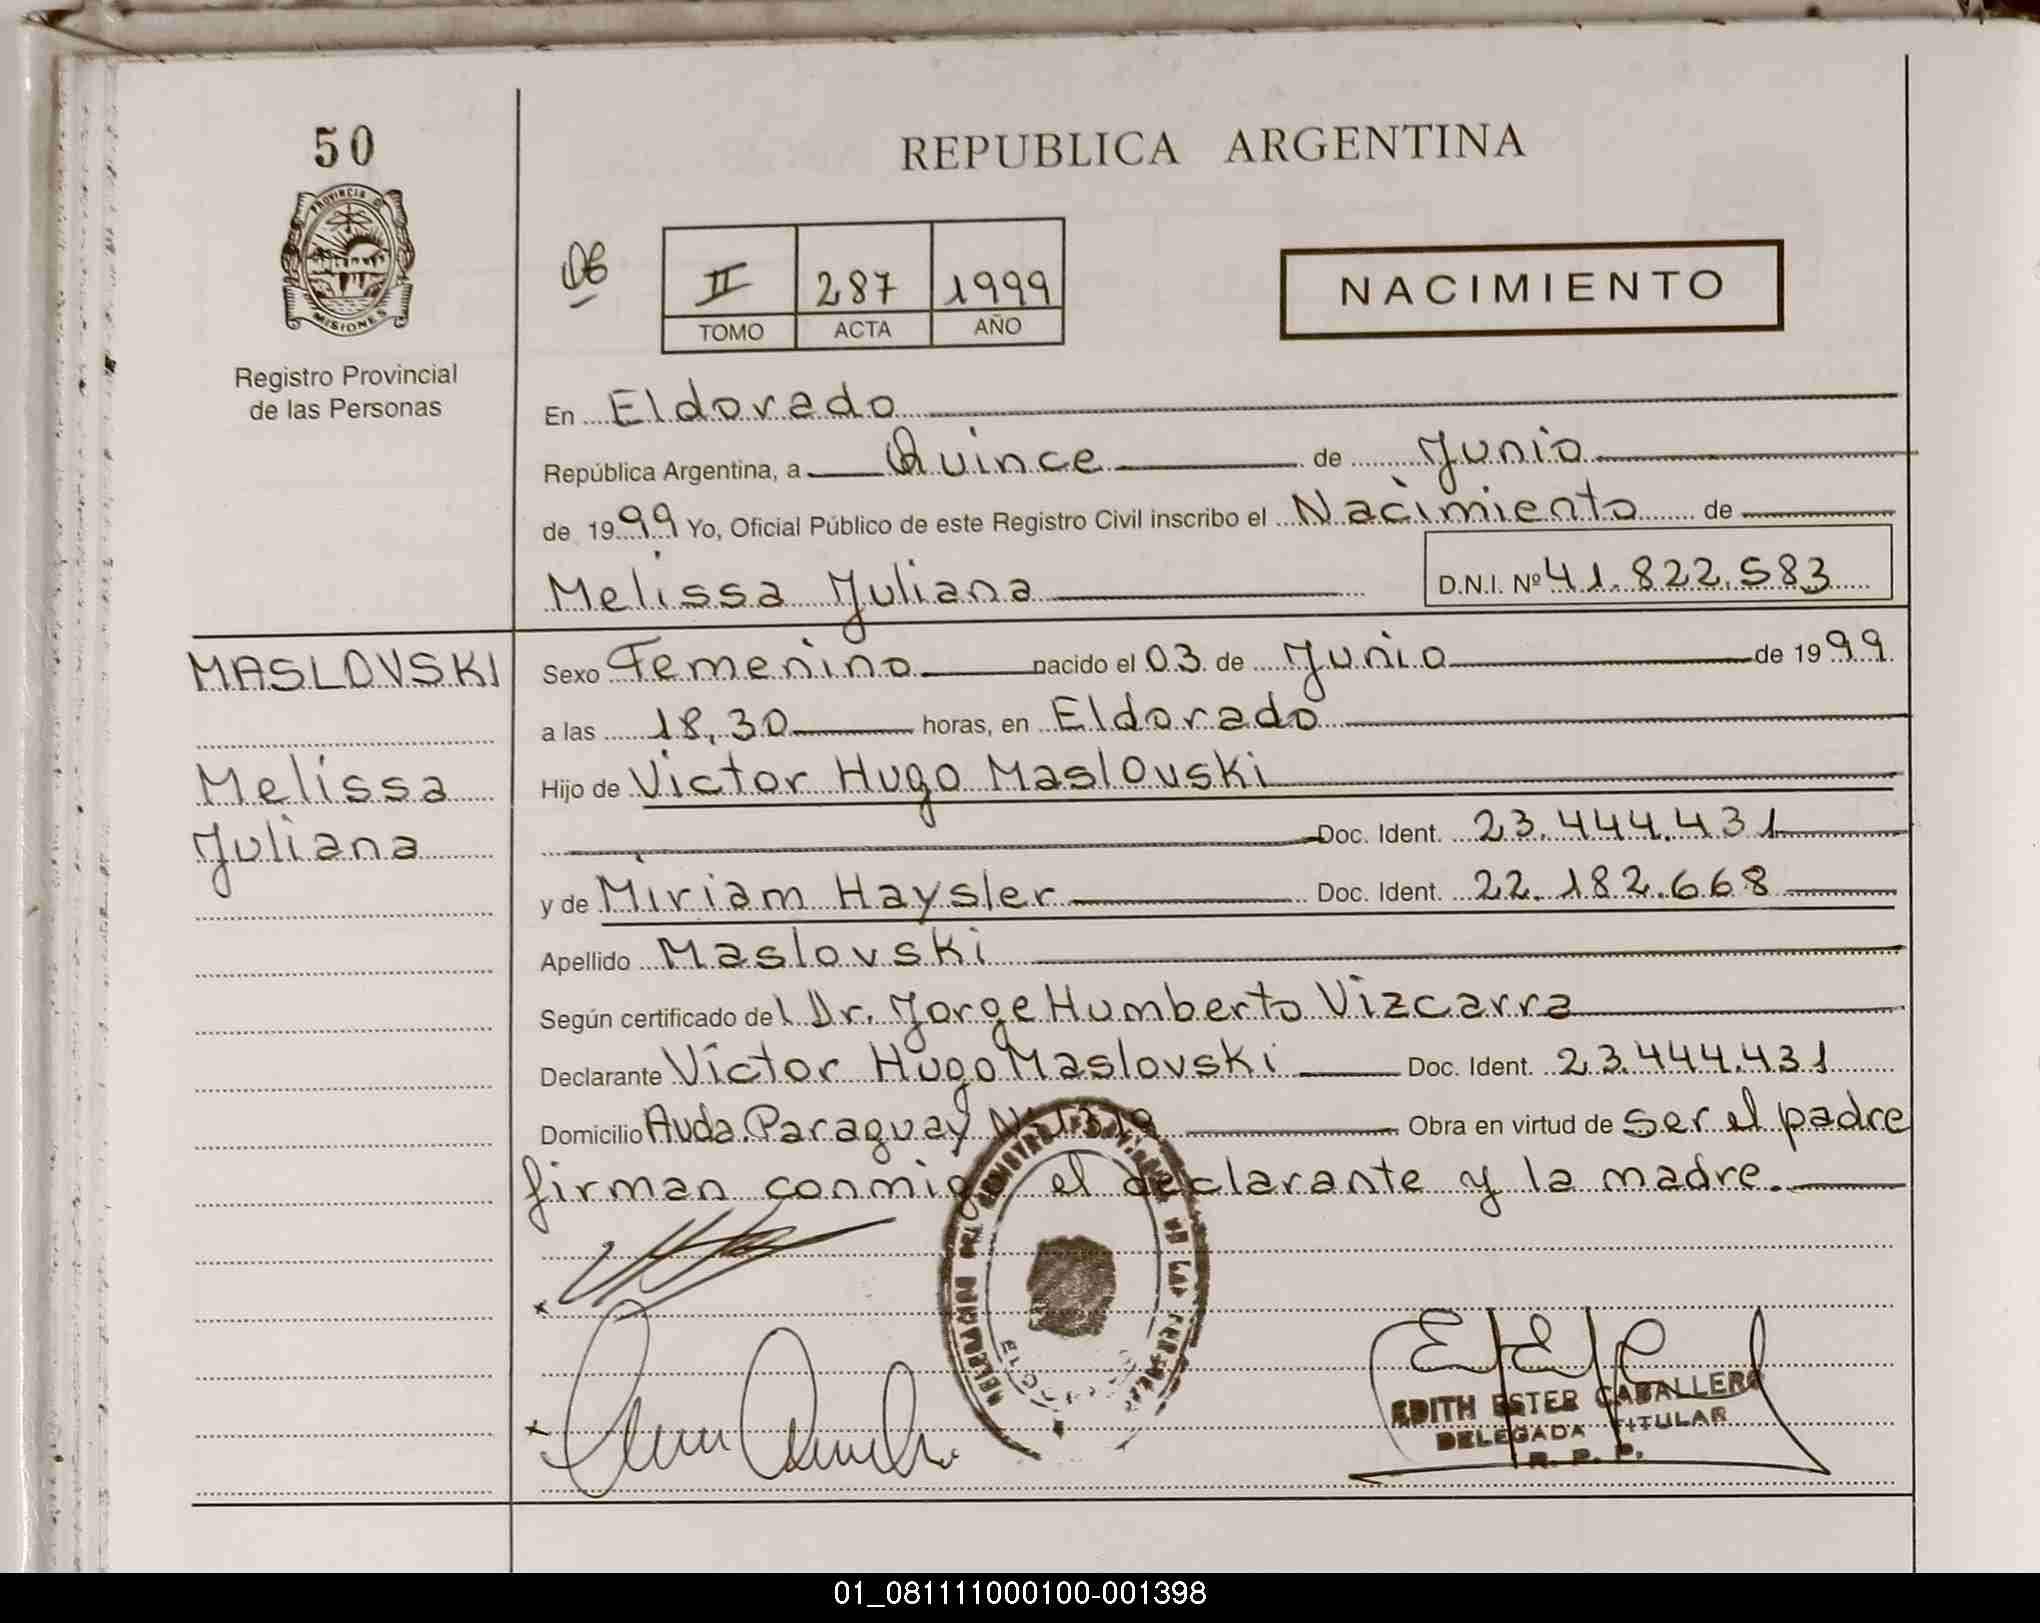 50
PROVINCIA DE
MISIONES
Registro Provincial
de las Personas
REPUBLICA ARGENTINA
06
II 287 1999
TOMO ACTA AÑO
NACIMIENTO
En Eldorado
República Argentina, a Quince de Junio
de 1999 Yo, Oficial Público de este Registro Civil inscribo el Nacimiento de
Melissa Juliana D.N.I. Nº 41.822.583
MASLOVSKI
Melissa
Juliana
Sexo Femenino nacido el 03 de Junio de 1999
a las 18,30 horas, en Eldorado
Hijo de Victor Hugo Maslovski
Doc. Ident. 23.444.431
y de Miriam Haysler Doc. Ident. 22.182.668
Apellido Maslovski
Según certificado del Dr. Jorge Humberto Vizcarra
Declarante Victor Hugo Maslovski Doc. Ident. 23.444.431
Domicilio Avda. Paraguay Nº Obra en virtud de ser el padre
firman conmigo el declarante y la madre.
EDITH ESTER CABALLERO
DELEGADA TITULAR
R. P. P.
01_081111000100-001398